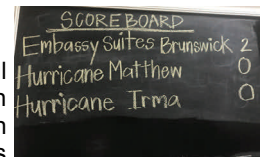 SCOREBOARD
Embassy Suites Brunswick 2
Hurricane Matthew 0
Hurricane Irma 0